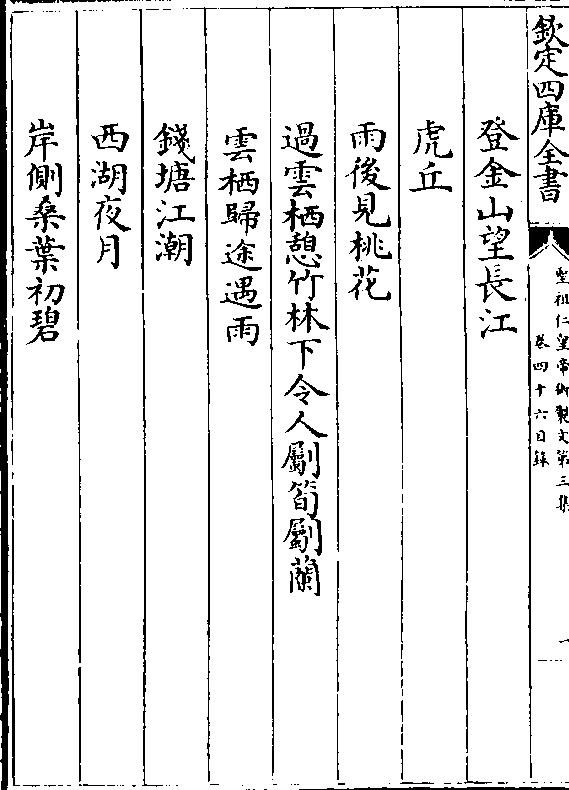 欽定四庫全書
聖祖仁皇帝御製文第三集
卷四十六目錄
一
登金山望長江
虎丘
雨後見桃花
過雲栖憩竹林下令人斸筍斸蘭
雲栖歸途遇雨
錢塘江潮
西湖夜月
岸側桑葉初碧